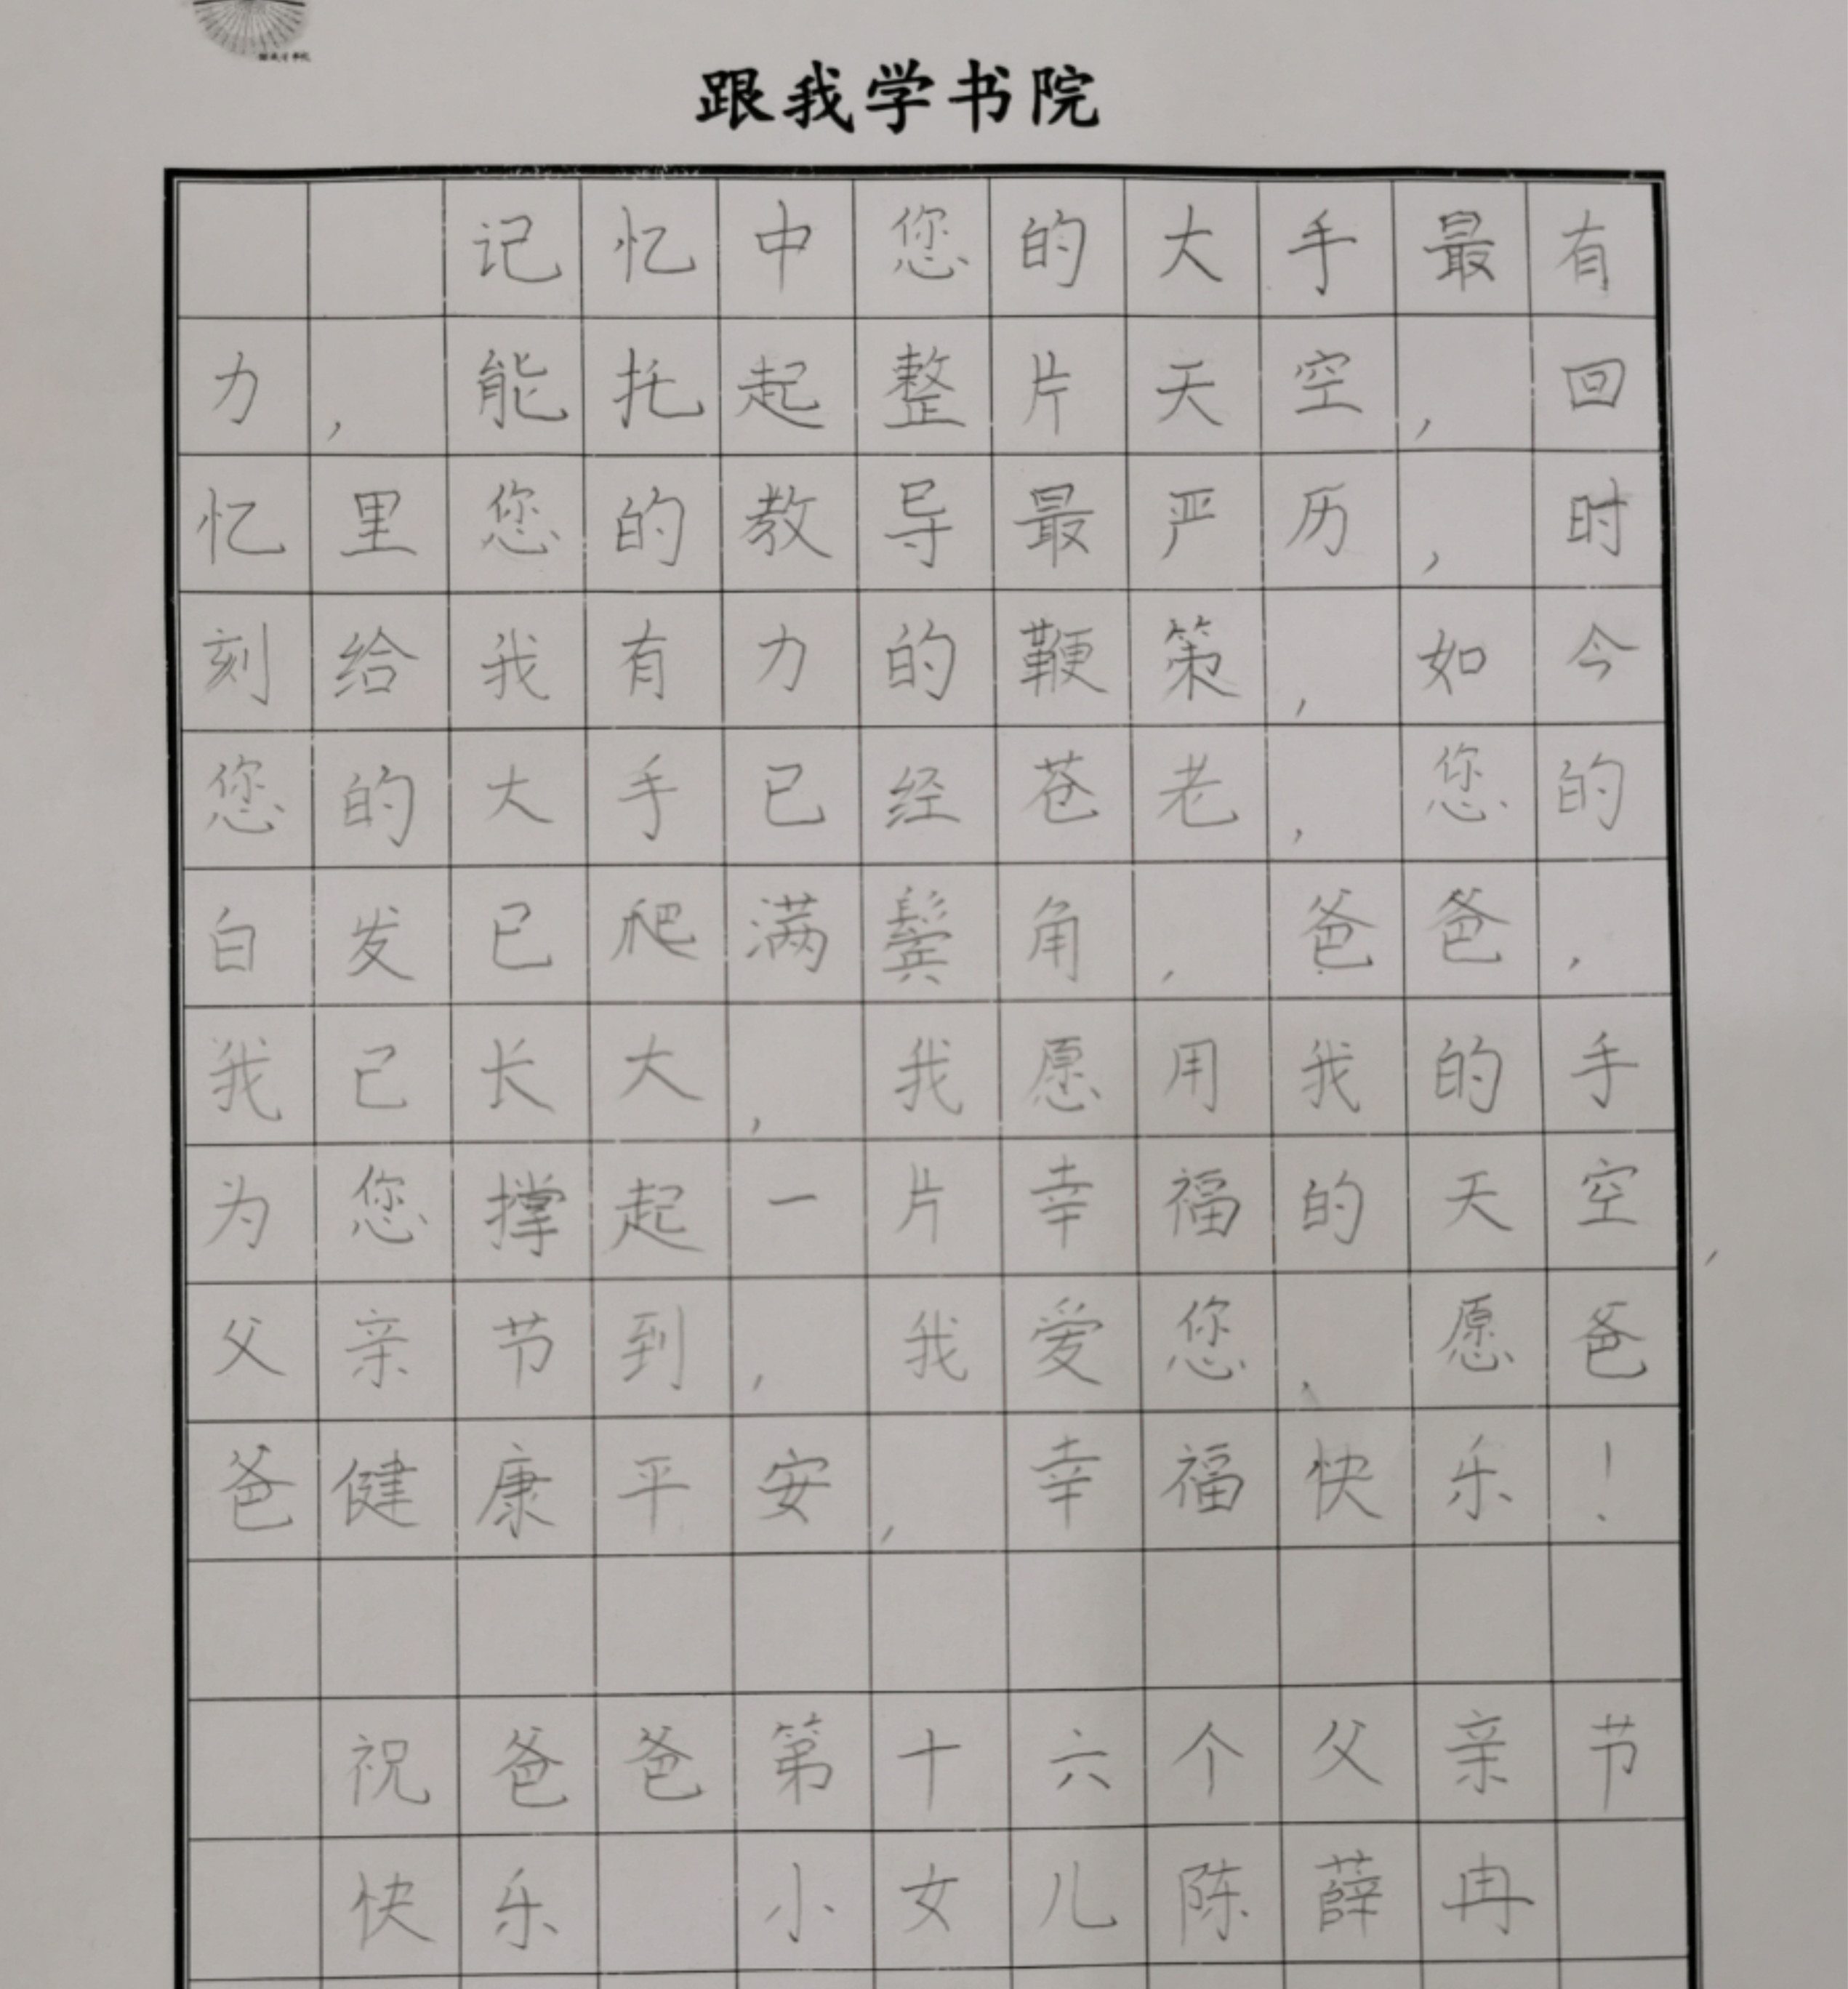 跟我学书院
记忆中您的大手最有
力，能托起整片天空，回
忆里您的教导最严历，时
刻给我有力的鞭策，如今
您的大手已经苍老，您的
白发已爬满鬓角，爸爸，
我已长大，我愿用我的手
为您撑起一片幸福的天空，
父亲节到，我爱您，愿爸
爸健康平安，幸福快乐！
祝爸爸第十六个父亲节
快乐 小女儿陈薛冉